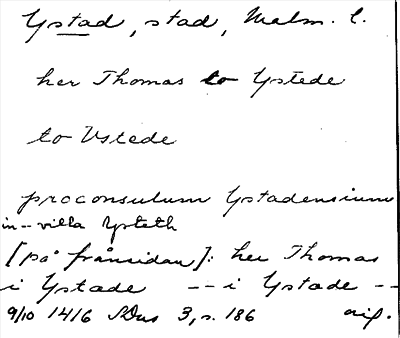 Ystad, stad, Malm. l.
her Thomas to Ystede
to Vstede
proconsulum Ystadensium
in -- villa Ysteth
[på frånsidan]: her Thomas
i Ystade -- i Ystade --
9/10 1416 SDns 3, s. 186 oif.